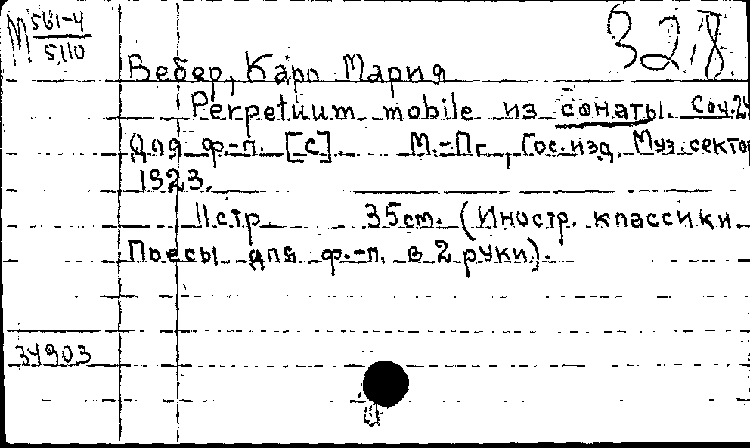 М 561-4
5110
32.8
Вебер, Карл Мария
Perpetuum mobile из сонаты. Соч. 24
Для ф.-п. [С]. М.-Пг., Гос. изд. Муз. сектор
1923.
11 стр. 35 cm. (Иностр. классики.
Пьесы для ф.-п. в 2 руки).
34903